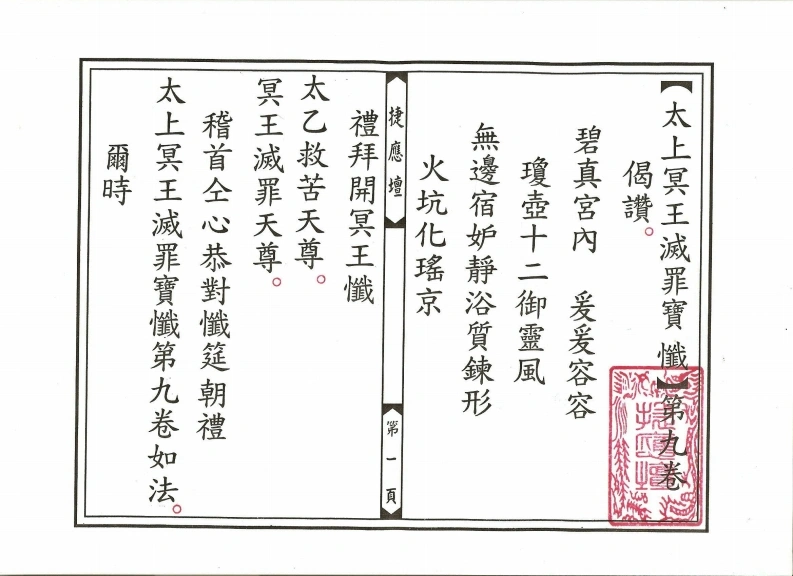 【太上冥王滅罪寶懺】第九卷
偈讚。
碧真宮內　爰爰容容
瓊壺十二御靈風
無邊宿妒靜浴質鍊形
火坑化瑤京
捷應壇
第一頁
禮拜開冥王懺
太乙救苦天尊。
冥王滅罪天尊。
稽首仝心恭對懺筵朝禮
太上冥王滅罪寶懺第九卷如法。
爾時